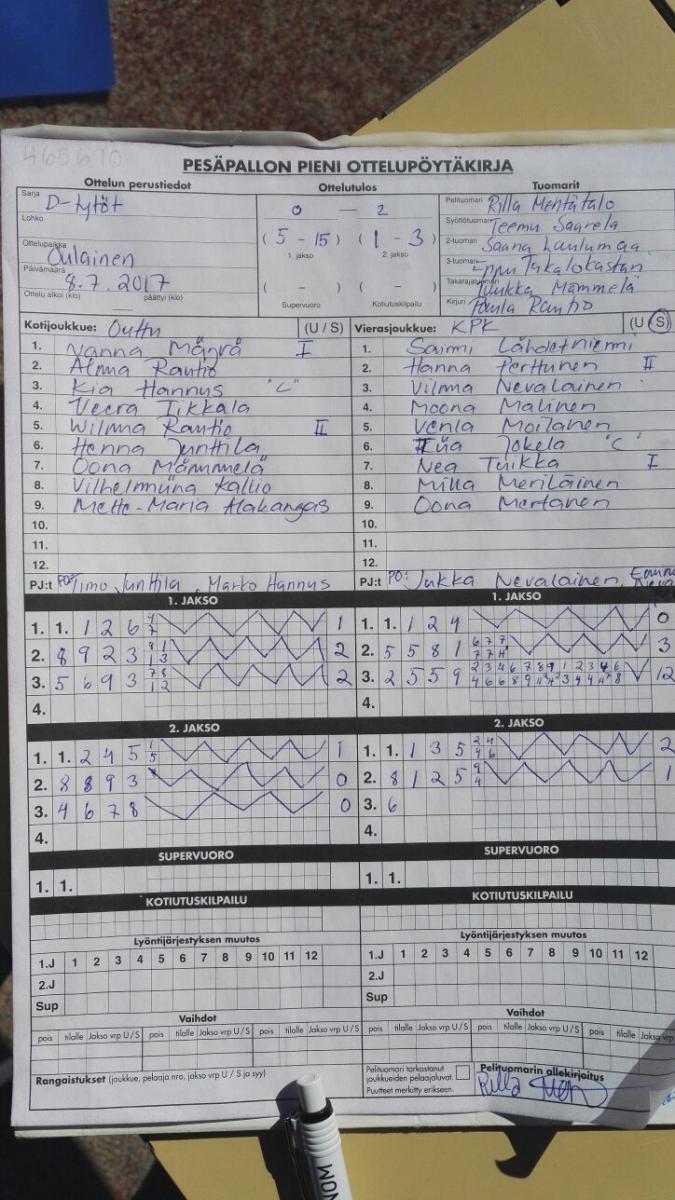 465690
PESÄPALLON PIENI OTTELUPÖYTÄKIRJA
Ottelun perustiedot
Ottelutulos
Tuomarit
Sarja D-tytöt
Lohko
Ottelupaikka Oulainen
Päivämäärä 8.7.2017
Ottelu alkoi (klo) päättyi (klo)
0 — 2
(5 - 15) (1 - 3)
1. jakso 2. jakso
( - ) ( - )
Supervuoro Kotiutuskilpailu
Pelituomari Rilla Mentätalo
Syöttötuomari Teemu Saarela
2-tuomari Saana Laulumaa
3-tuomari Eppu Takalokastari
Takarajatuomari Tuukka Mämmelä
Kirjuri Paula Rautio
Kotijoukkue: Outtu (U / S)
1. Nanna Mäyrä I
2. Alma Rautio
3. Kia Hannus "C"
4. Veera Tikkala
5. Wilma Rautio II
6. Henna Junttila
7. Oona Mämmelä
8. Vilhelmiina Kallio
9. Mette-Maria Alakangas
10.
11.
12.
PJ:t PO: Timo Junttila, Marko Hannus
Vierasjoukkue: KPK (U / S)
1. Saimi Lähdetniemi
2. Hanna Perttunen II
3. Vilma Nevalainen
4. Moona Malinen
5. Venla Moilanen
6. Iia Jokela "C"
7. Nea Tuikka I
8. Milla Meriläinen
9. Oona Mertanen
10.
11.
12.
PJ:t PO: Jukka Nevalainen,
1. JAKSO
1. 1. 1 2 6 4 7 1
2. 8 9 2 3 8 1 1 3 2
3. 5 6 9 3 7 8 1 2 2
4.
1. JAKSO
1. 1. 1 2 4 0
2. 5 5 8 1 6 7 7 7 7 3
3. 2 5 5 9 12
4.
2. JAKSO
1. 1. 2 4 5 1 5 1
2. 8 8 9 3 0
3. 4 6 7 8 0
4.
2. JAKSO
1. 1. 1 3 5 2 4 4 6 2
2. 8 1 2 5 9 4 1
3. 6
4.
SUPERVUORO
1. 1.
SUPERVUORO
1. 1.
KOTIUTUSKILPAILU
KOTIUTUSKILPAILU
Lyöntijärjestyksen muutos
1.J 1 2 3 4 5 6 7 8 9 10 11 12
2.J
Sup
Lyöntijärjestyksen muutos
1.J 1 2 3 4 5 6 7 8 9 10 11 12
2.J
Sup
Vaihdot
pois tilalle Jakso vrp U / S pois tilalle Jakso vrp U / S pois tilalle Jakso vrp U / S
Vaihdot
pois tilalle Jakso vrp U / S pois tilalle Jakso vrp U / S pois tilalle Jakso vrp
Rangaistukset (joukkue, pelaaja nro, jakso vrp U / S ja syy)
Pelituomari tarkastanut
joukkueiden pelaajaluvat.
Puutteet merkitty erikseen.
Pelituomarin allekirjoitus
Rilla
NOM